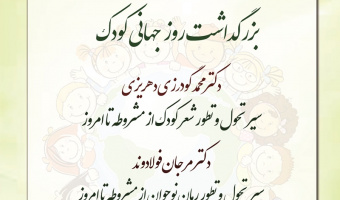 بزرگداشت روز جهانی کودک
دکتر محمد گودرزی دهریزی
سیر تحول و تطور شعر کودک از مشروطه تا امروز
دکتر مرجان فولادوند
سیر تحول و تطور رمان نوجوان از مشروطه تا امروز